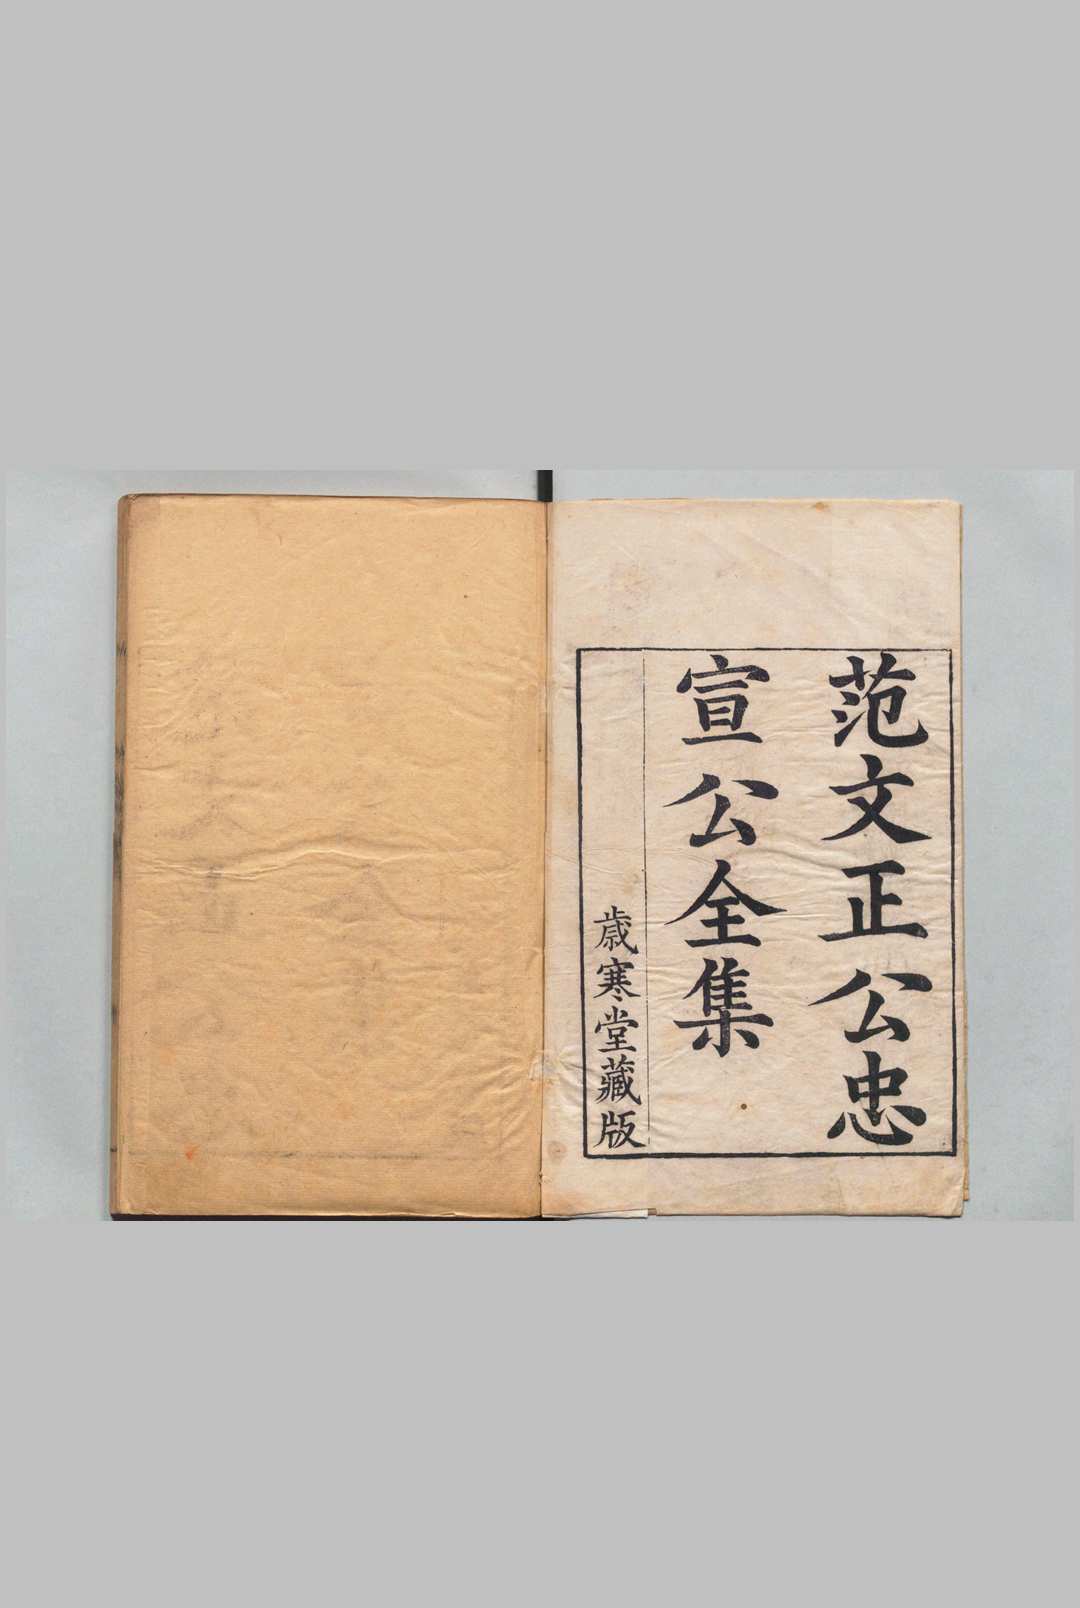 范文正公忠
宣公全集
歲寒堂藏版